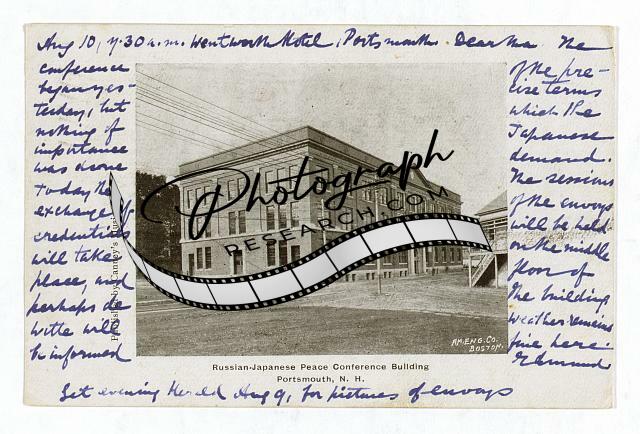 Aug 10, 7.30 a.m. Wentworth Hotel, Portsmouth. Dear Ma. The
conference
began yes-
terday, but
nothing of
importance
was done
Today the
exchange of
credentials
will take
place, and
perhaps de
Witte will
be informed
of the pre-
cise terms
which the
Japanese
demand.
The sessions
of the envoys
will be held
on the middle
floor of
the building
Weather remains
fine here.
Edmund
Get evening Herald Aug 9, for pictures of envoys
Photograph
RESEARCH.COM
Published by Canney's Music
AM. ENG. CO.
BOSTON.
Russian-Japanese Peace Conference Building
Portsmouth, N. H.